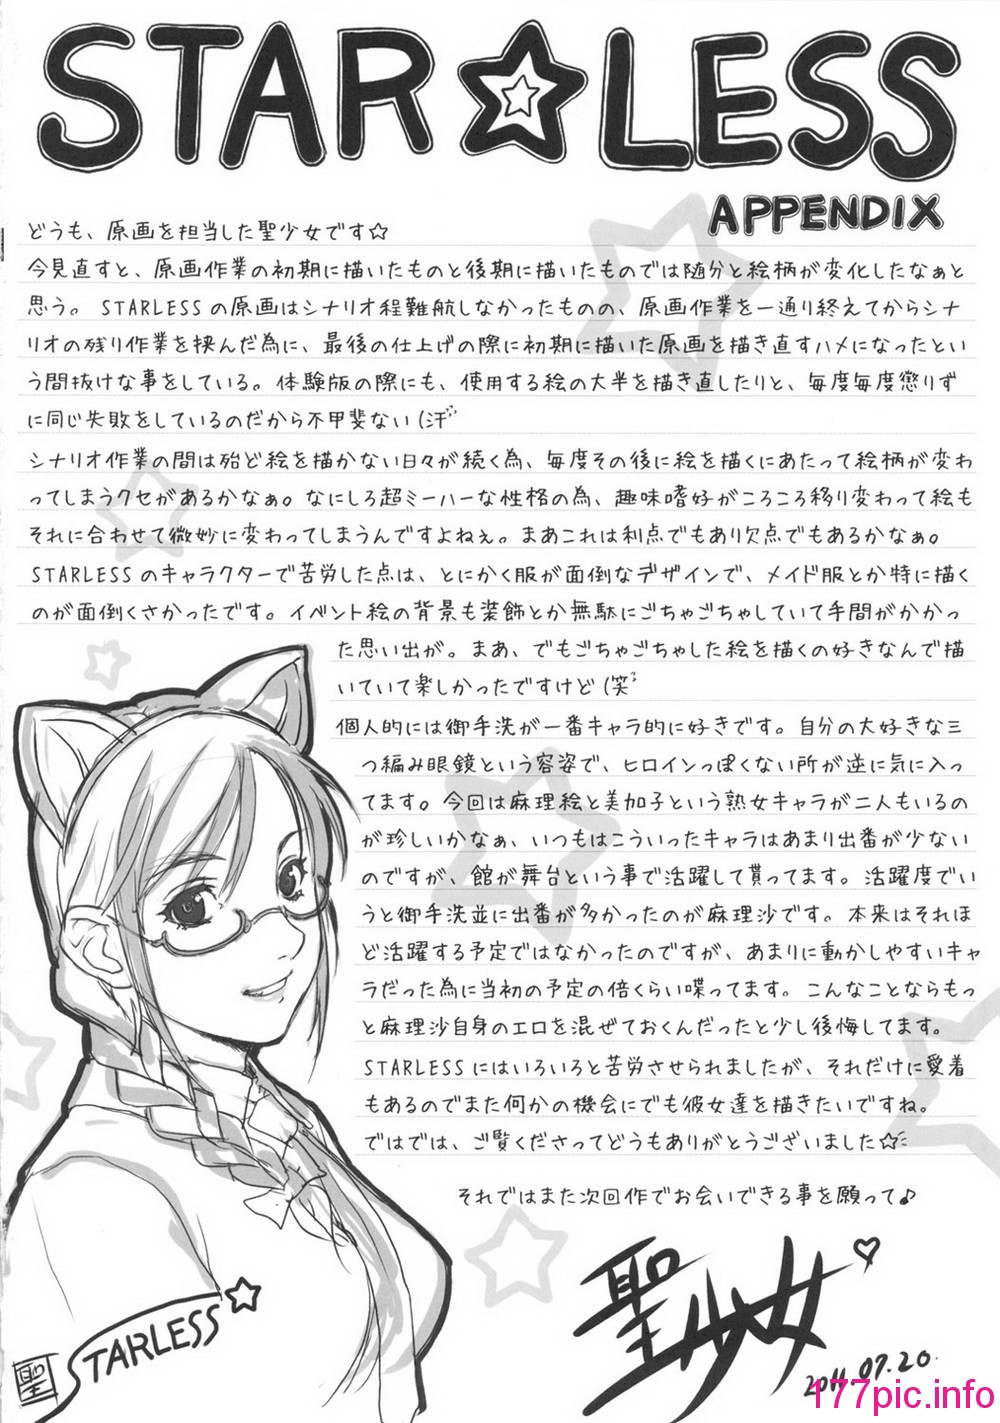 STAR☆LESS
APPENDIX
どうも、原画を担当した聖少女です☆
今見直すと、原画作業の初期に描いたものと後期に描いたものでは随分と絵柄が変化したなぁと
思う。STARLESSの原画はシナリオ程難航しなかったものの、原画作業を一通り終えてからシナ
リオの残り作業を挟んだ為に、最後の仕上げの際に初期に描いた原画を描き直すハメになったとい
う間抜けな事をしている。体験版の際にも、使用する絵の大半を描き直したりと、毎度毎度懲りず
に同じ失敗をしているのだから不甲斐ない(汗
シナリオ作業の間は殆ど絵を描かない日々が続く為、毎度その後に絵を描くにあたって絵柄が変わ
ってしまうクセがあるかなぁ。なにしろ超ミーハーな性格の為、趣味嗜好がころころ移り変わって絵も
それに合わせて微妙に変わってしまうんですよねぇ。まあこれは利点でもあり欠点でもあるかなぁ。
STARLESSのキャラクターで苦労した点は、とにかく服が面倒なデザインで、メイド服とか特に描く
のが面倒くさかったです。イベント絵の背景も装飾とか無駄にごちゃごちゃしていて手間がかかっ
た思い出が。まあ、でもごちゃごちゃした絵を描くの好きなんで描
いていて楽しかったですけど(笑
個人的には御手洗が一番キャラ的に好きです。自分の大好きな三
つ編み眼鏡という容姿で、ヒロインっぽくない所が逆に気に入っ
てます。今回は麻理絵と美加子という熟女キャラが二人もいるの
が珍しいかなぁ、いつもはこういったキャラはあまり出番が少ない
のですが、館が舞台という事で活躍して貰ってます。活躍度でい
うと御手洗並に出番が多かったのが麻理沙です。本来はそれほ
ど活躍する予定ではなかったのですが、あまりに動かしやすいキャ
ラだった為に当初の予定の倍くらい喋ってます。こんなことならもっ
と麻理沙自身のエロを混ぜておくんだったと少し後悔してます。
STARLESSにはいろいろと苦労させられましたが、それだけに愛着
もあるのでまた何かの機会にでも彼女達を描きたいですね。
ではでは、ご覧くださってどうもありがとうございました☆
それではまた次回作でお会いできる事を願って♪
聖少女♡
2011.07.20.
STARLESS☆
聖
177pic.info